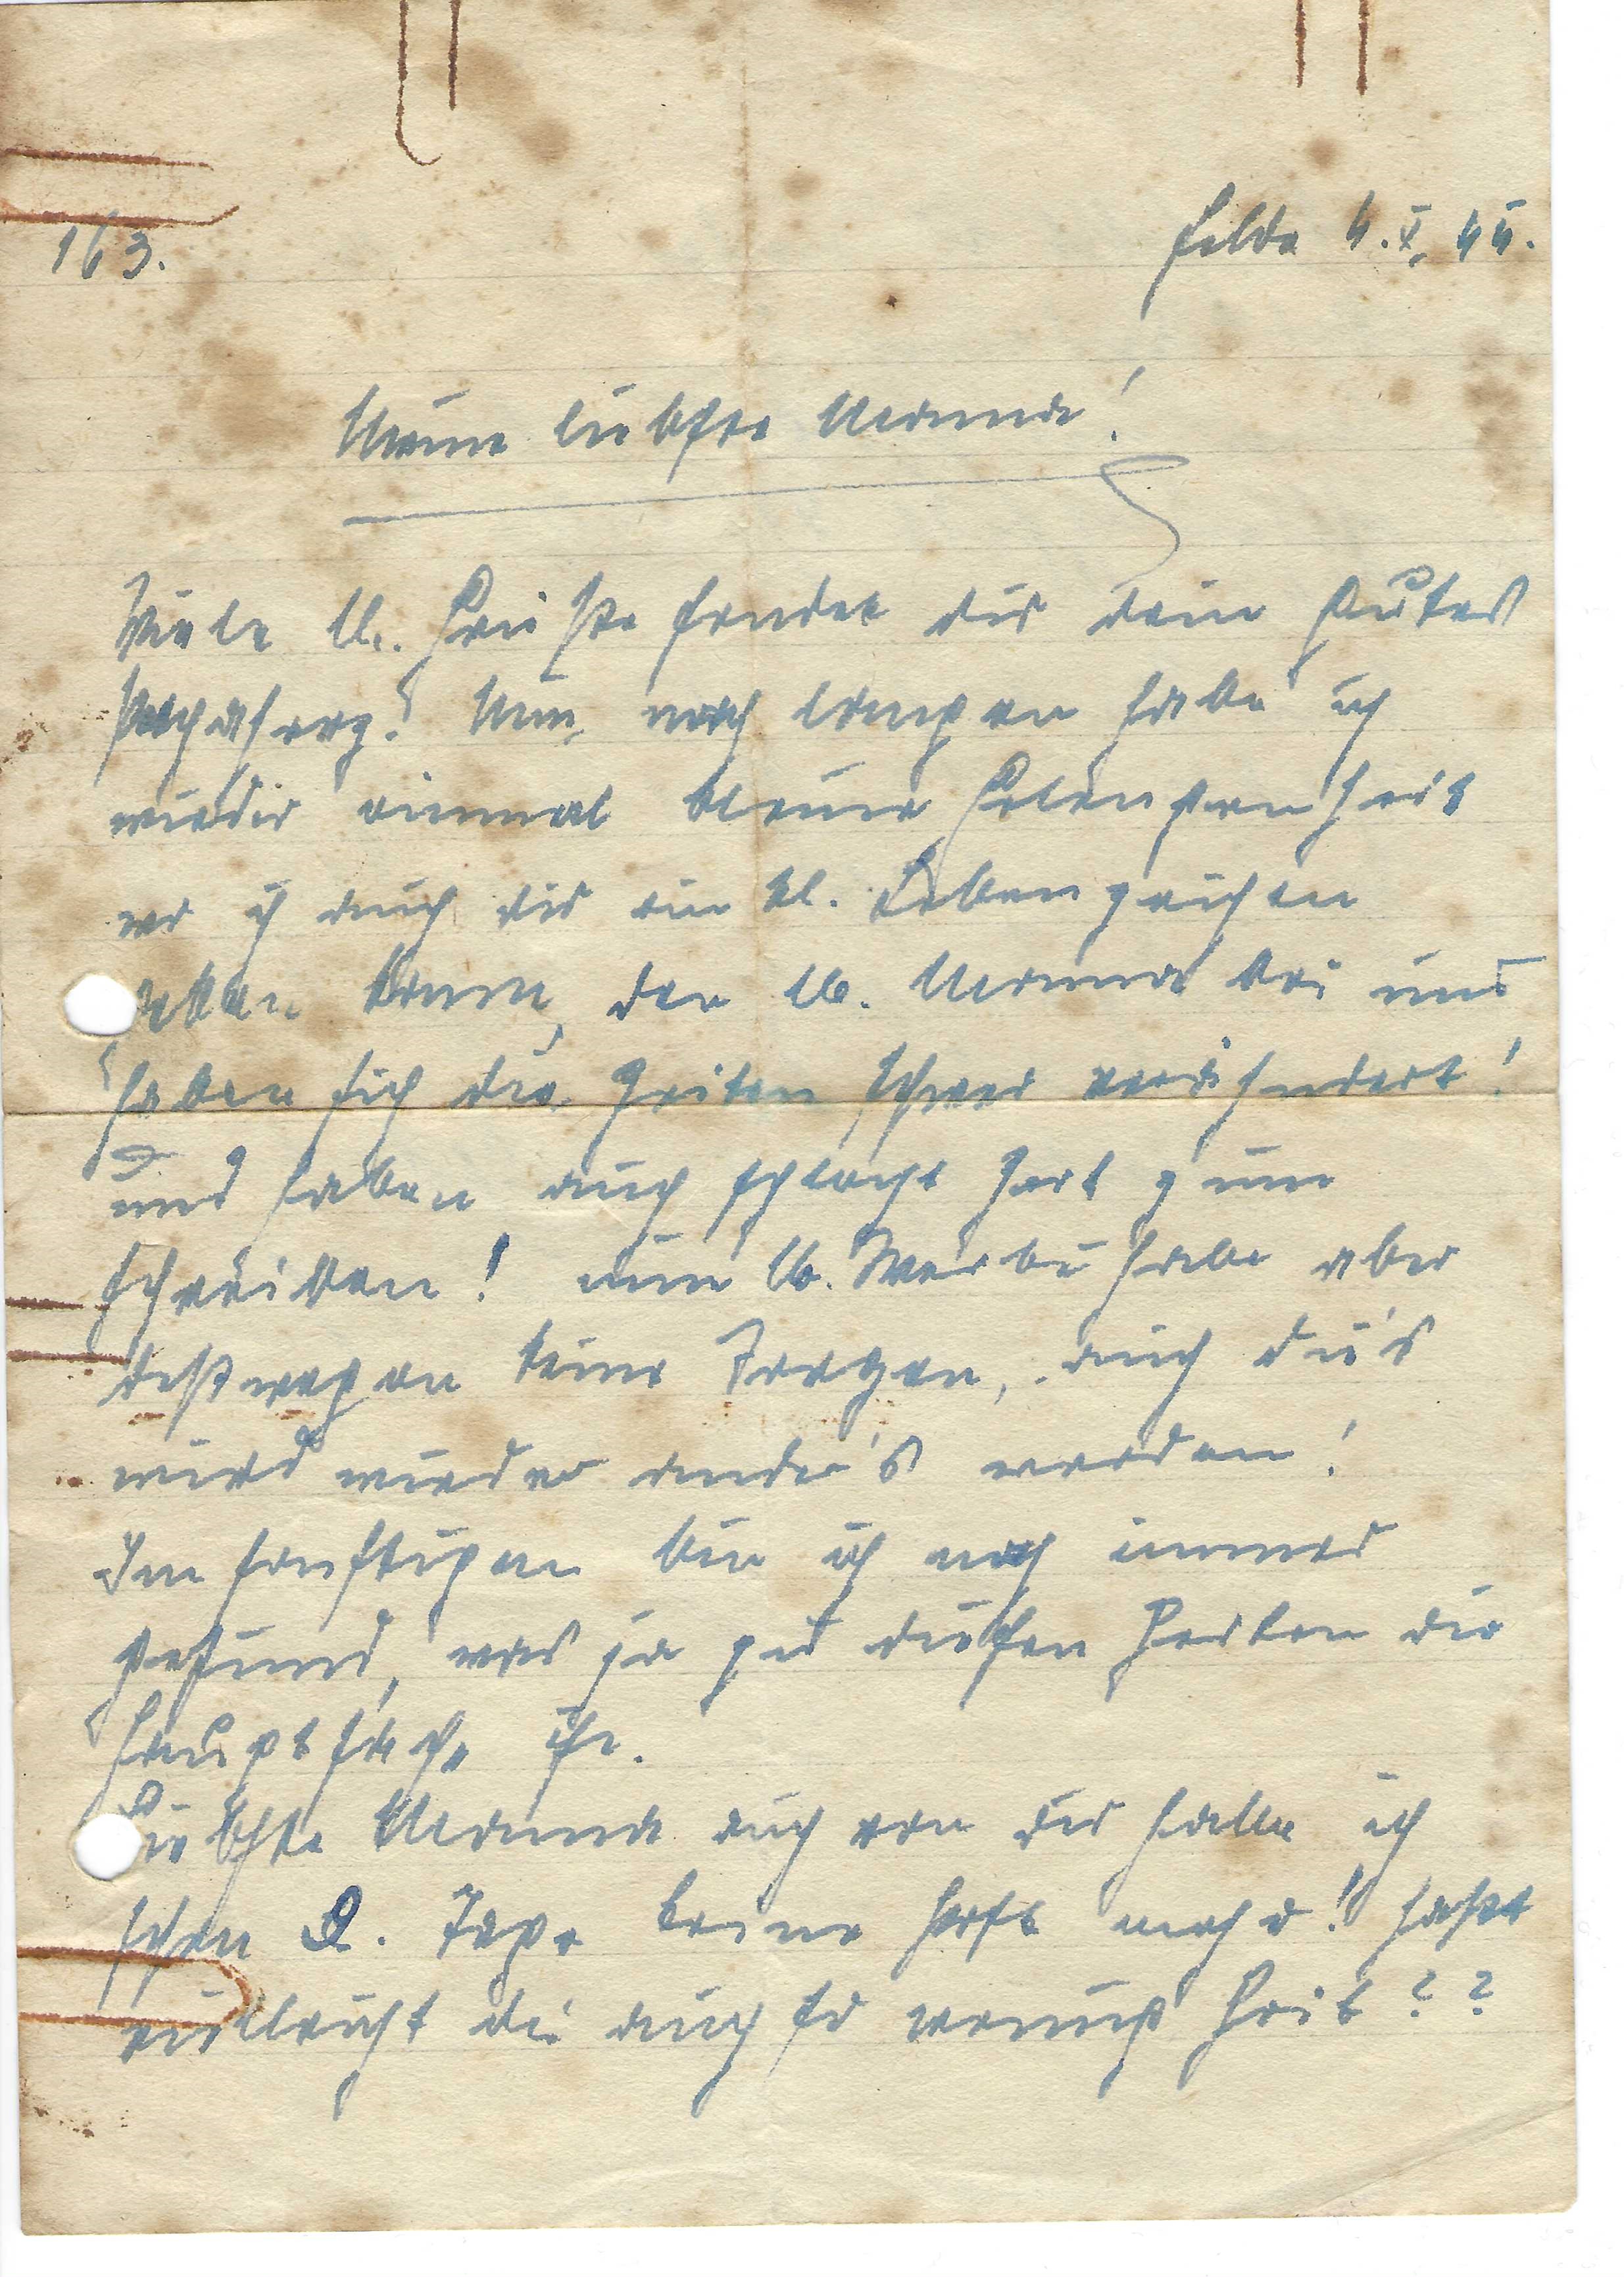 163.
Felde 4.X.44.
Meine liebste Mamma!
Viele lb. Grüße sendet dir dein gutes
Nun, nach langen habe ich
wieder einmal kleine Gelengenheit
wo ich auch dir ein kl. Lebenzeichen
geben kann, den lb. Mamma bei uns
haben sich die Zeiten schwer verändert!
und haben auch schlecht Zeit zum
schreiben! nun lb. habe aber
deßwegen keine Sorgen, auch dies
wird wieder ander's werden!
Im sonstigen bin ich noch immer
gesund, was ja zu diesen Zeiten die
Hauptsache ist.
Liebste Mamma auch von dir habe ich
schon Tage keine Post mehr! hast
vielleicht du auch so wenig Zeit??